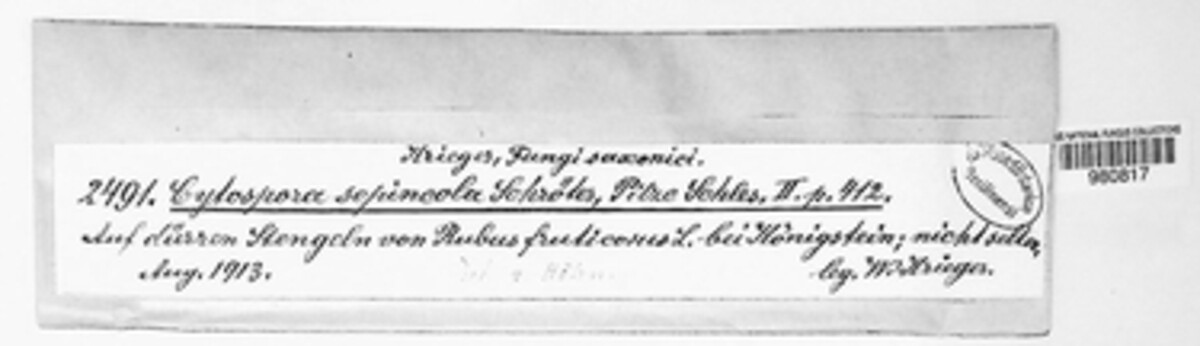 Krieger, Fungi saxonici.
2491. Cytospora sepincola Schröter, Pilze Schles. II. p. 412.
Auf dürren Stengeln von Rubus fruticosus L. bei Königstein; nicht selten.
Aug. 1913.
leg. W. Krieger.
NATIONAL FUNGUS COLLECTIONS
980817